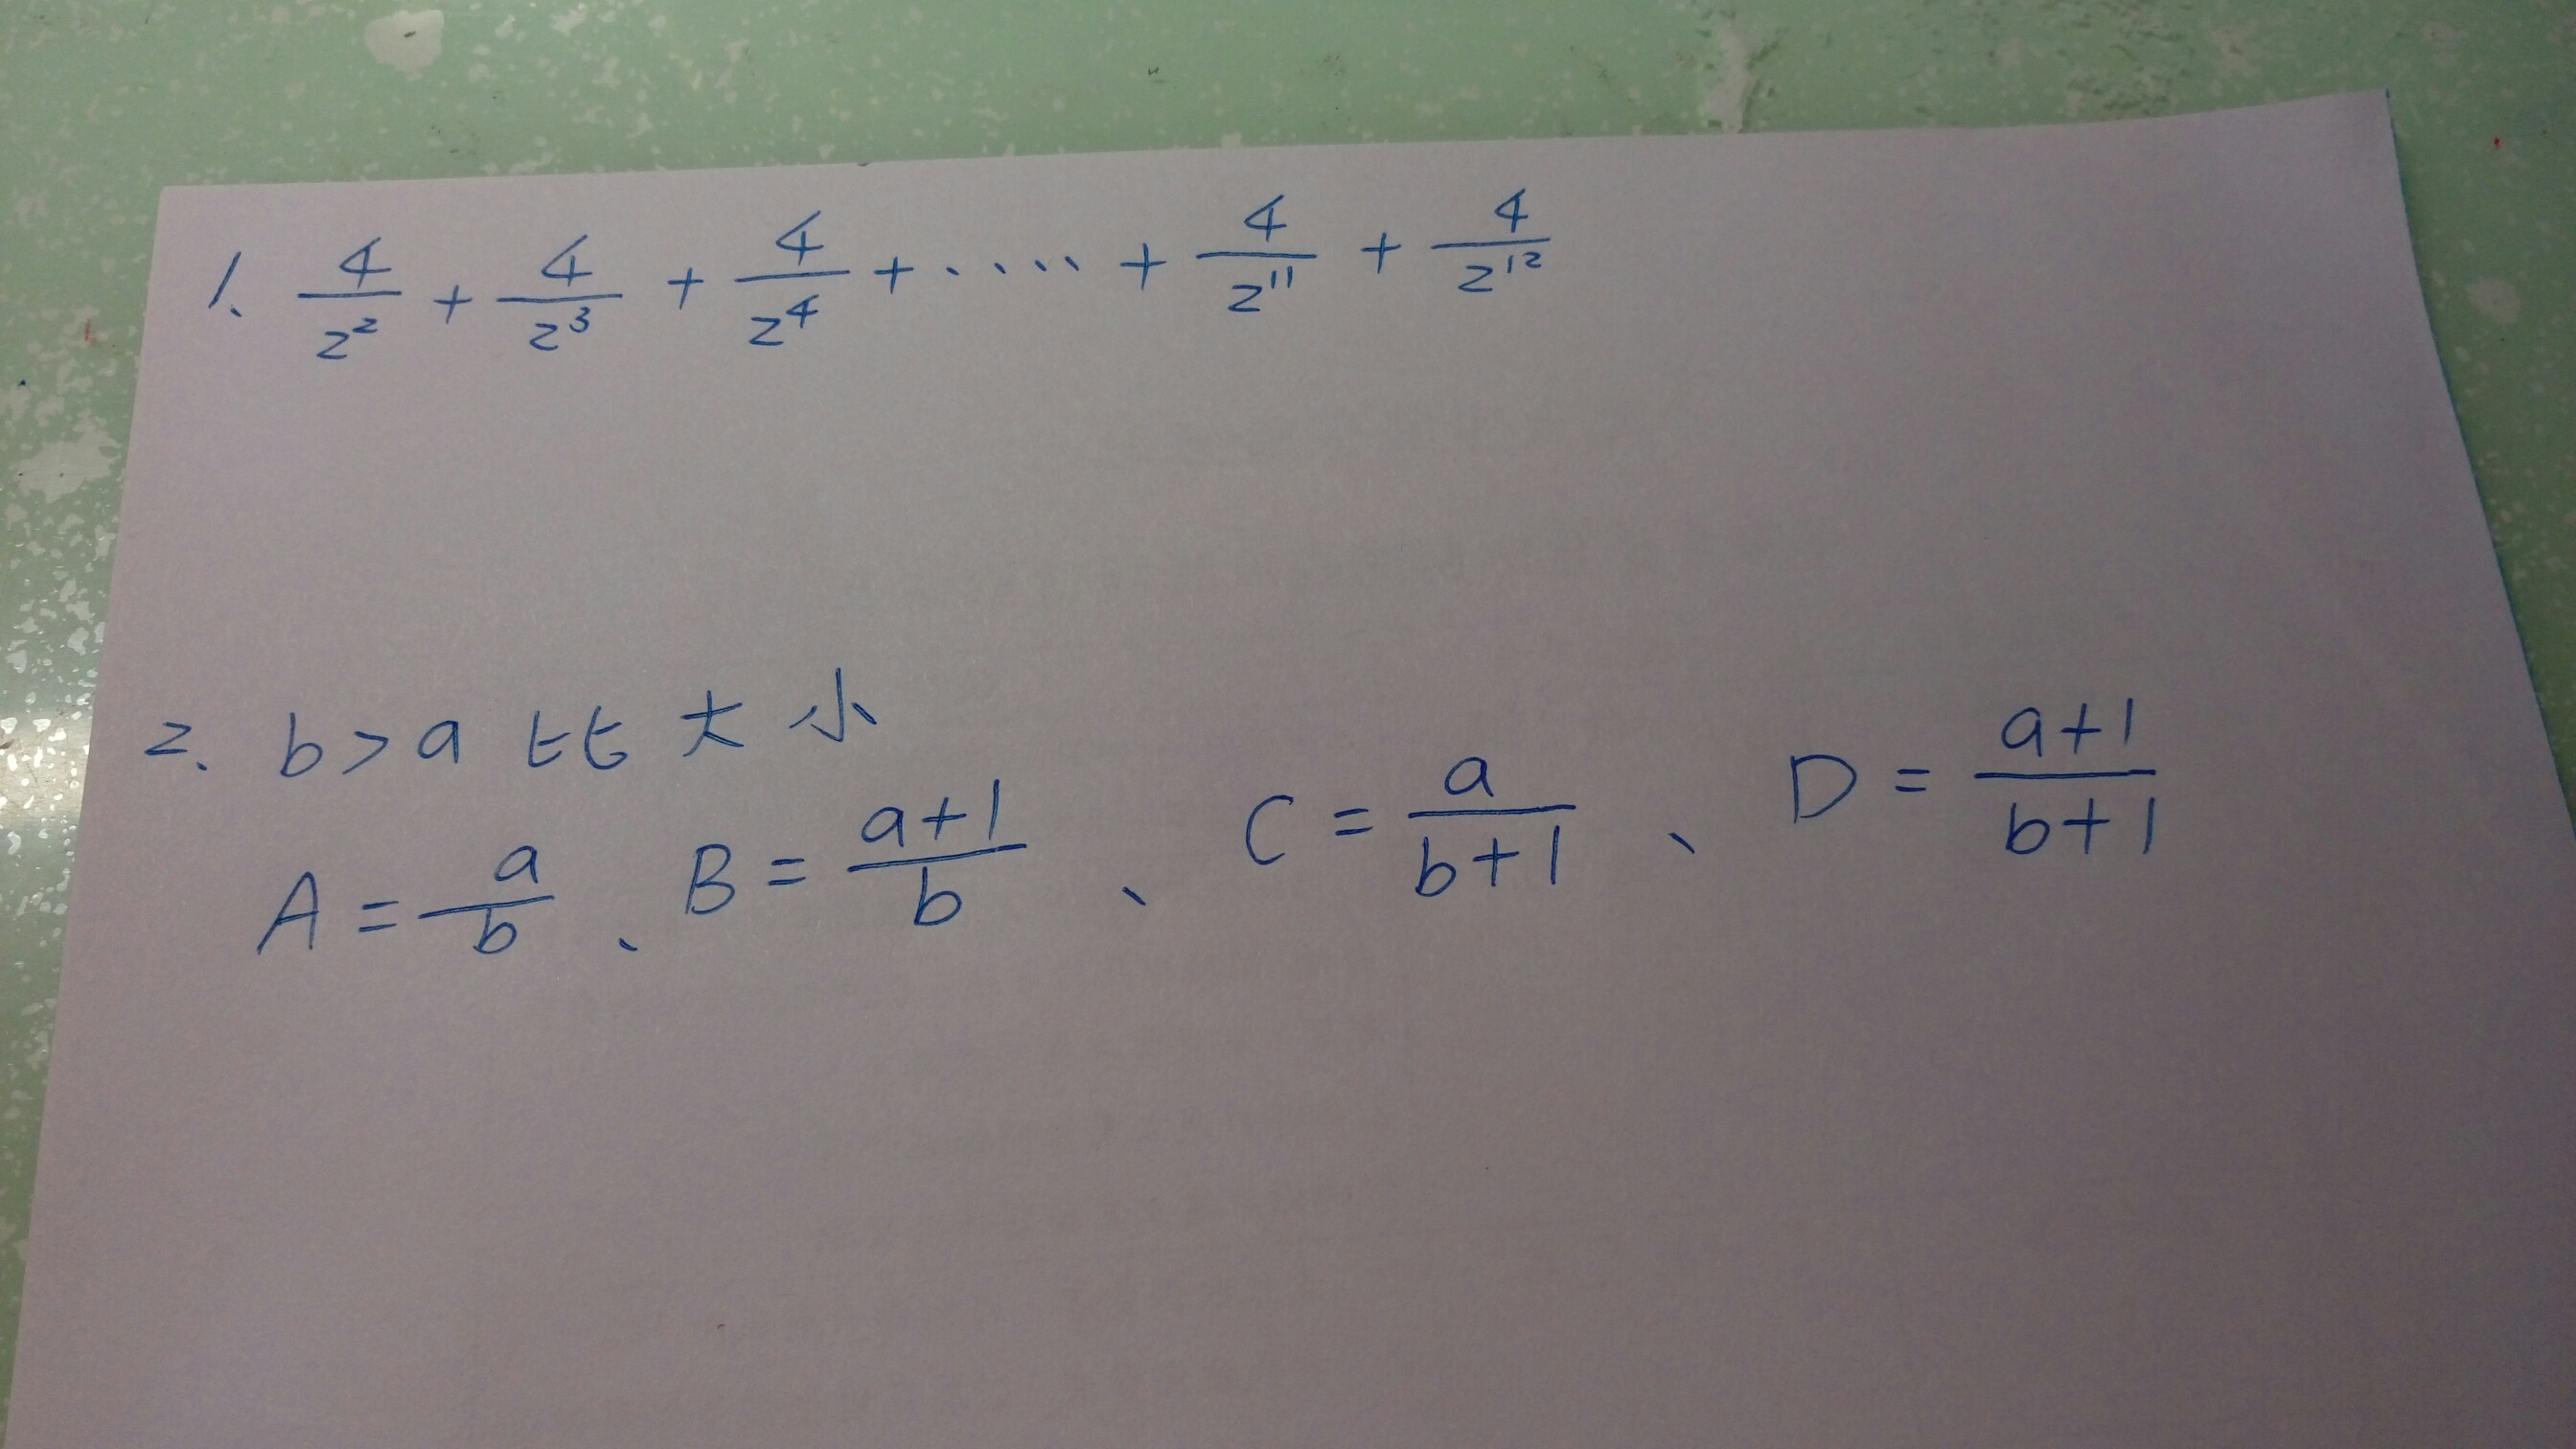 1. 4/2² + 4/2³ + 4/2⁴ + ····· + 4/2¹¹ + 4/2¹²
2. b > a 比大小
A = a/b 、 B = (a+1)/b 、 C = a/(b+1) 、 D = (a+1)/(b+1)